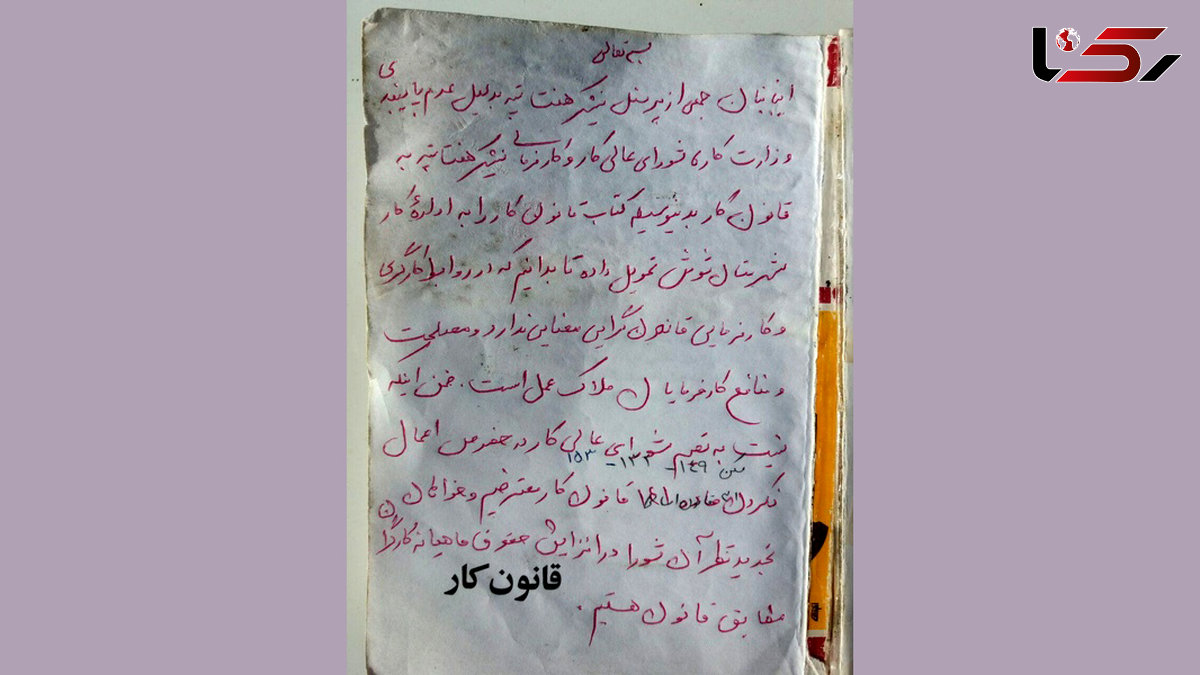 بسمه تعالی
اینجانبان جمعی از پرسنل نیشکر هفت تپه بدلیل عدم پایبندی
وزارت کار، شورای عالی کار و کارفرمای نیشکر هفت تپه به
قانون کار بدینوسیله کتاب قانون کار را به ادارهٔ کار
شهرستان شوش تحویل داده تا بدانیم که در روابط کارگری
و کارفرمایی قانون گرایی معنایی ندارد و مصلحت
و منافع کارفرمایان ملاک عمل است. ضمن اینکه
نسبت به تصمیم شورای عالی کار در خصوص اعمال
مسکن ۱۴۹ـ ۱۳۳ـ ۱۵۳
نکردن قانون کار معترضیم و خواهان
تجدید نظر آن شورا در افزایش حقوق ماهیانه کارگران
قانون کار
مطابق قانون هستیم.
رکنا